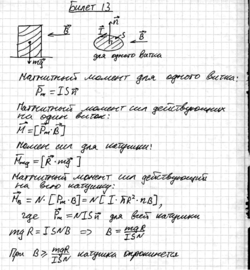 Билет 13
B⃗
n⃗
S
B⃗
I
mg⃗
для одного витка
Магнитный момент для одного витка:
P⃗m = IS n⃗
Магнитный момент сил действующих
на один виток:
M⃗ = [P⃗m · B⃗]
Момен сил для катушки:
M⃗mg = [R⃗ · mg⃗]
Магнитный момент сил действующий
на всю катушку:
M⃗B = N · [P⃗m · B⃗] = N [I · πR² · n⃗ B⃗],
где P⃗m = NIS n⃗ для всей катушки
mgR = ISNB ⇒ B = mgR/ISN
При B ≥ mgR/ISN катушка опрокинется